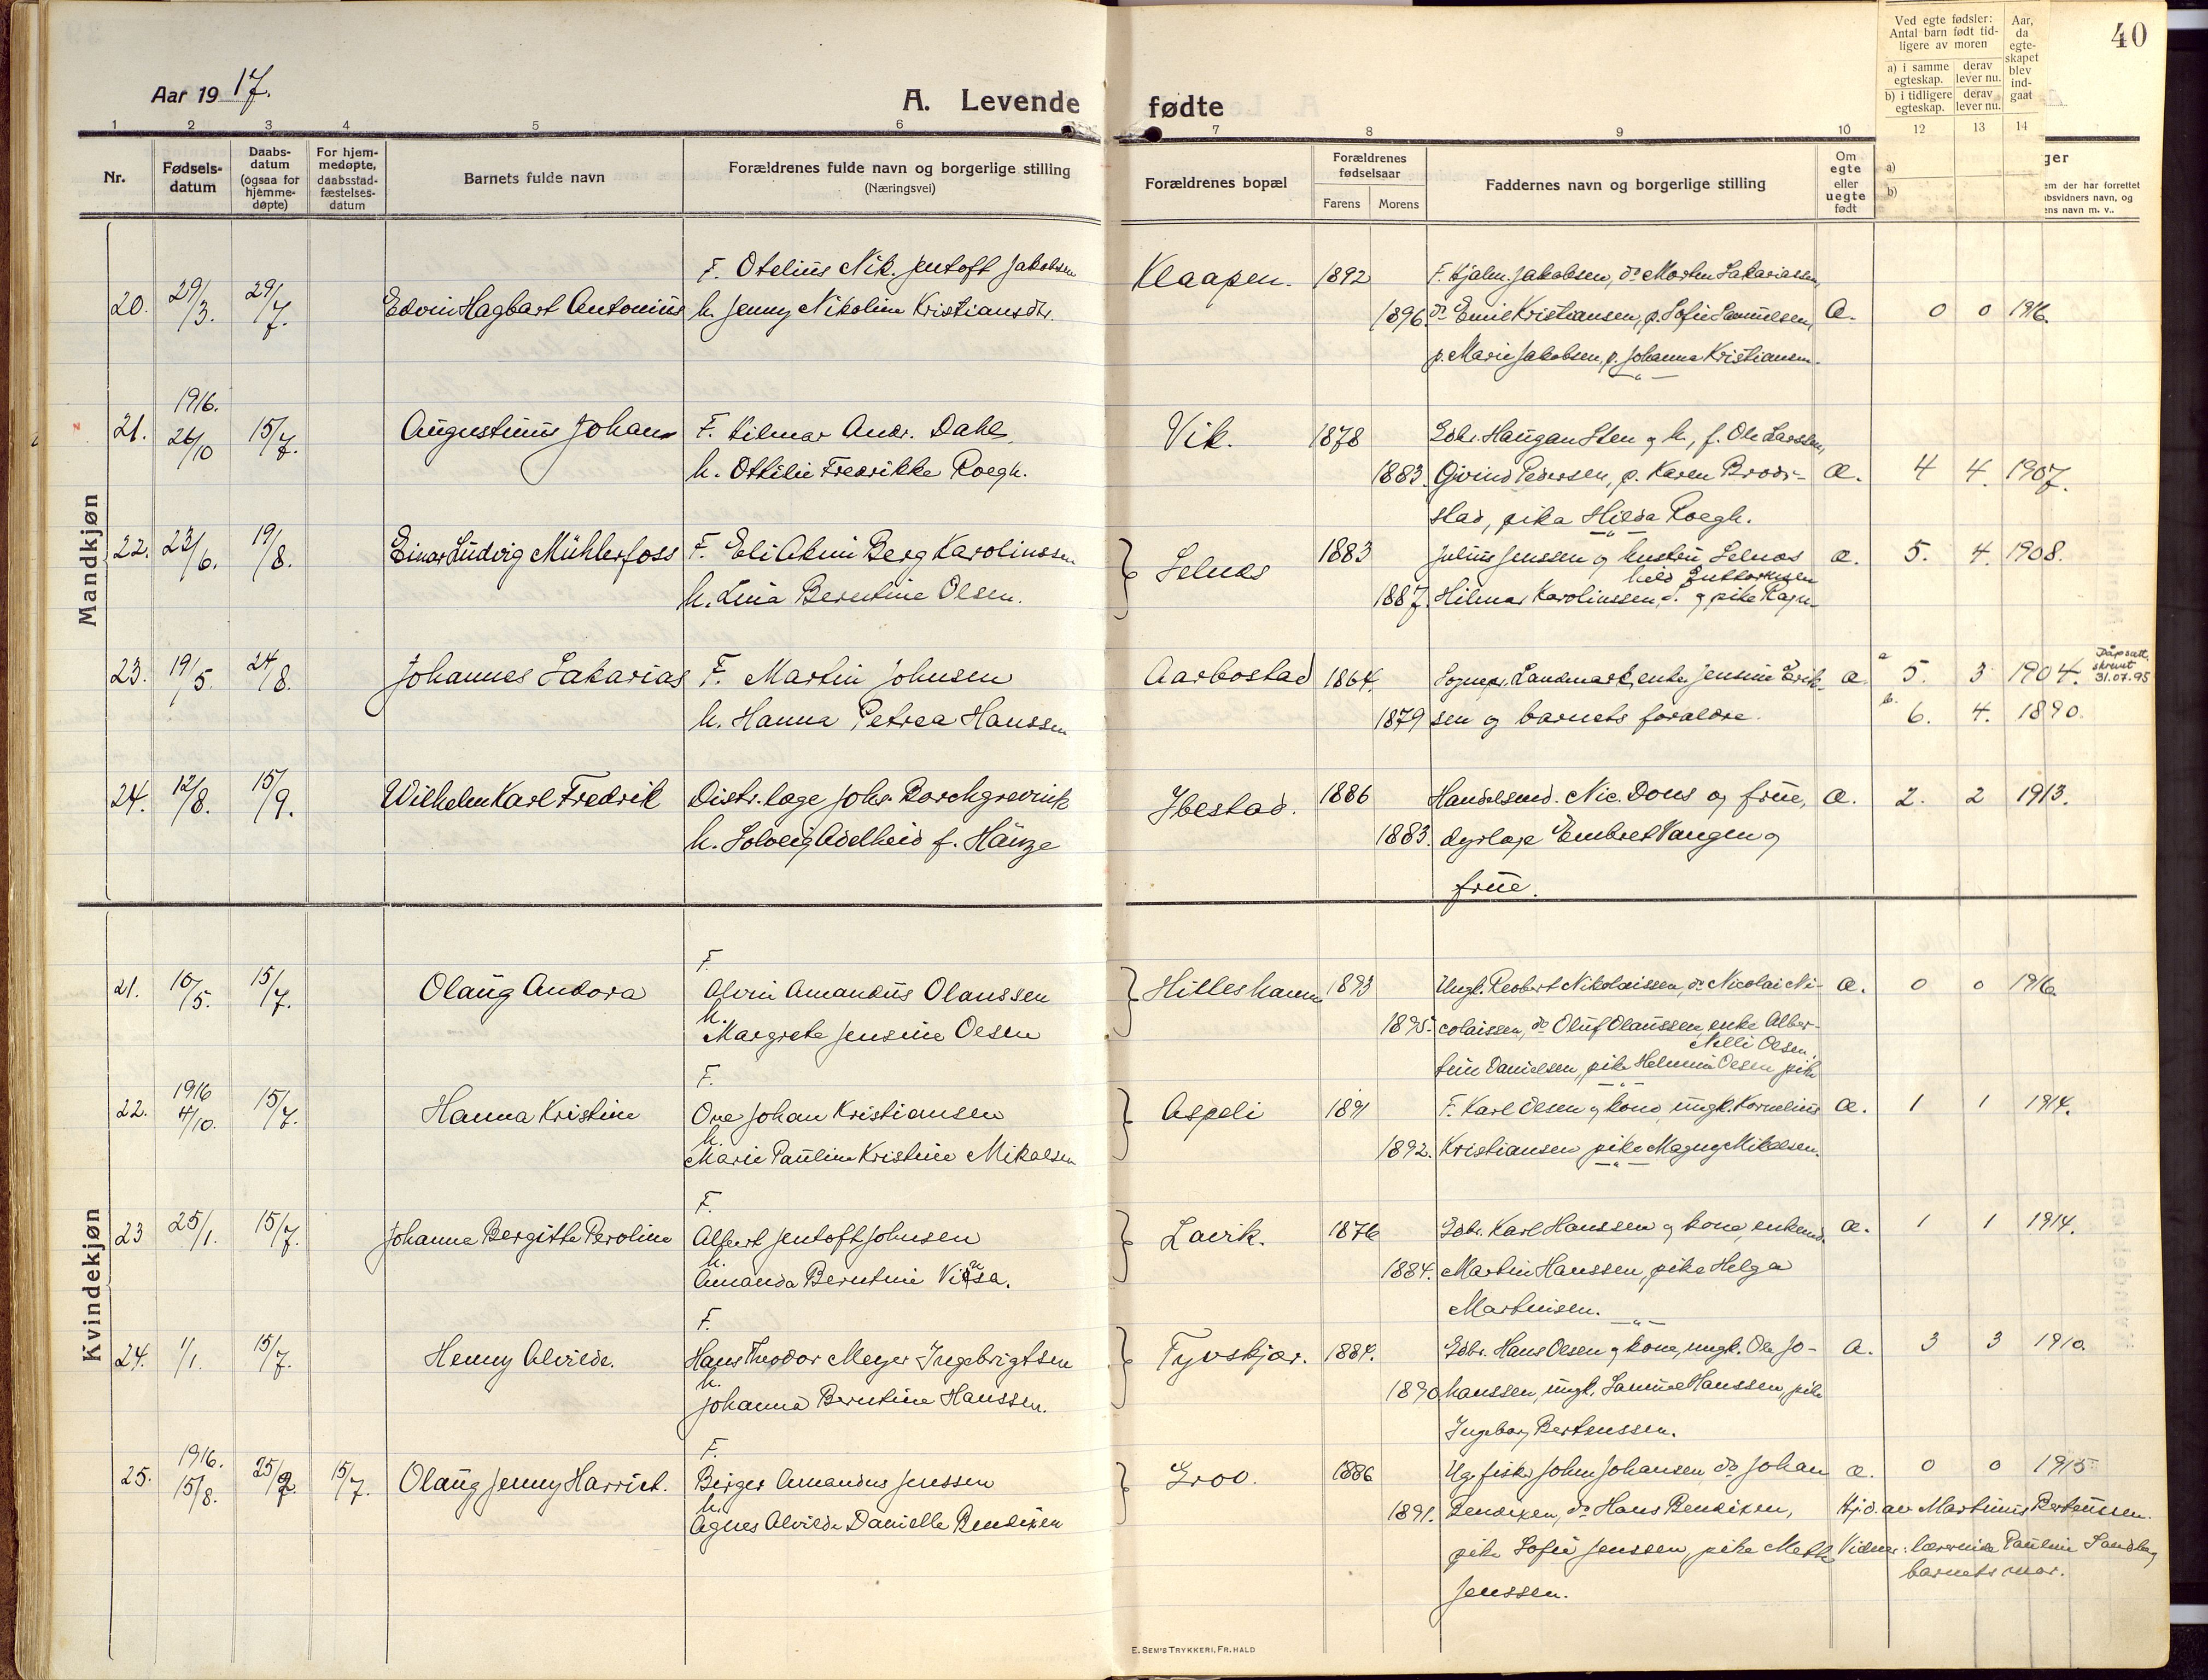 Aar 1917.
A. Levende fødte
40
Ved egte fødsler: Antal barn født tidligere av moren
a) i samme egteskap. derav lever nu.
b) i tidligere egteskap. derav lever nu.
Aar, da egteskapet blev indgaat
1 2 3 4 5 6 7 8 9 10 12 13 14
Nr.
Fødselsdatum
Daabsdatum (ogsaa for hjemmedøpte)
For hjemmedøpte, daabsstadfæstelsesdatum
Barnets fulde navn
Forældrenes fulde navn og borgerlige stilling (Næringsvei)
Forældrenes bopæl
Forældrenes fødselsaar
Farens Morens
Faddernes navn og borgerlige stilling
Om egte eller uegte født
a)
b)
ger
em der har forrettet
bsvidners navn, og
ens navn m. v..
Mandkjøn
F. Otelius Nik. Jentoft Jakobsen Klaapen. 1892 F. Hjalm. Jakobsen, do Morten Sakariassen,
20. 29/3. 29/7. Edvin Hagbart Antonius h. Jenny Nikoline Kristiansdtr. 1896. do Emil Kristiansen, p. Sofie Samuelsen, Æ. 0 0 1916.
p. Marie Jakobsen, p. Johanna Kristiansen.
1916.
21. 26/10 15/7. Augustinus Johan F. Hilmar Andr. Dahl. Vik. 1878 Gdbr. Haugan Sten og h., f. Ole Larssen,
h. Ottilie Fredrikke Roegh. 1883. Øivind Pedersen, p. Karen Brod- æ. 4 4. 1907.
stad, pika Hilda Roegh.
22. 23/6. 19/8. Einar Ludvig Mühlerfoss F. Eli Akim Berg Karolinssen Selnæs 1883 Julius Jenssen og hustru Selnæs æ. 5. 4. 1908.
hild Guttormsen
h. Lina Berntine Olsen. 1887. Hilmar Karolinssen, S. og pike Ragn-
23. 19/5. 24/8. Johannes Sakarias F. Martin Johnsen Aarbostad 1864. Sognepr. Landmark, enke Jensine Erik- æ. a 5. 3 1904. Dåpsatt. skrevet 31.07.95
h. Hanna Petrea Hanssen 1879 sen og barnets forældre. b. 6. 4. 1890.
24. 12/8. 15/9. Wilhelm Karl Fredrik Distr. læge Johs. Borchgrevink Ibestad. 1886 Handelsmd. Nic. Dons og frue, æ. 2. 2 1913.
h. Solveig Adelheid f. Hauge 1883. dyrlæge Embret Vangen og
frue.
Kvindekjøn
F.
21. 10/5. 15/7. Olaug Andora Alvin Amandus Olaussen Hilleshamn 1893 Ungk. Robert Nikolaissen, do Nicolai Ni- æ. 0 0 1916.
h.
Margrete Jensine Olsen 1895. colaissen, do Oluf Olaussen, enke Alber-
Nelli Olsen.
tine Danielsen, pike Helmine Olsen pike
F.
1916
22. 4/10. 15/7. Hanna Kristine Ove Johan Kristiansen Aspeli 1891 F. Karl Olsen og kone, ungk. Kornelius æ. 1 1 1914.
h.
Marie Pauline Kristine Mikalsen 1892. Kristiansen pike Magny Mikalsen.
F.
23 25/1. 15/7. Johanne Bergitte Peroline Alfert Jentoft Johnsen Lavik. 1876 Gdbr. Karl Hanssen og kone, enkemd. æ. 1 1 1914.
h.
Amanda Berntine 1884. Martin Hanssen, pike Helga
Martinsen.
F.
24. 1/1. 15/7. Henny Alvilde. Hans Theodor Meyer Ingebrigtsen Tyvskjær. 1884. Gdbr. Hans Olsen og kone, ungk. Ole Jo- æ. 3 3 1910.
h.
Johanna Berntine Hanssen. 1890 hanssen, ungk. Samuel Hanssen, pike
Ingeborg Berteussen.
F.
1916.
25. 15/8. 25/2. 15/7. Olaug Jenny Harriet. Birger Amandus Jenssen Groo. 1886 Ug. fisk. Johan Johansen do Johan æ. 0 0 1915
h.
Agnes Alvilde Danielle Bendixen 1891. Bendixen, do Hans Bendixen, Hjd. av Martinus Berteussen.
pike Sofie Jenssen, pike Meth Vidner: lærerinde Pauline Sandberg
Jenssen. barnets mor.
E. SEM'S TRYKKERI, FR. HALD